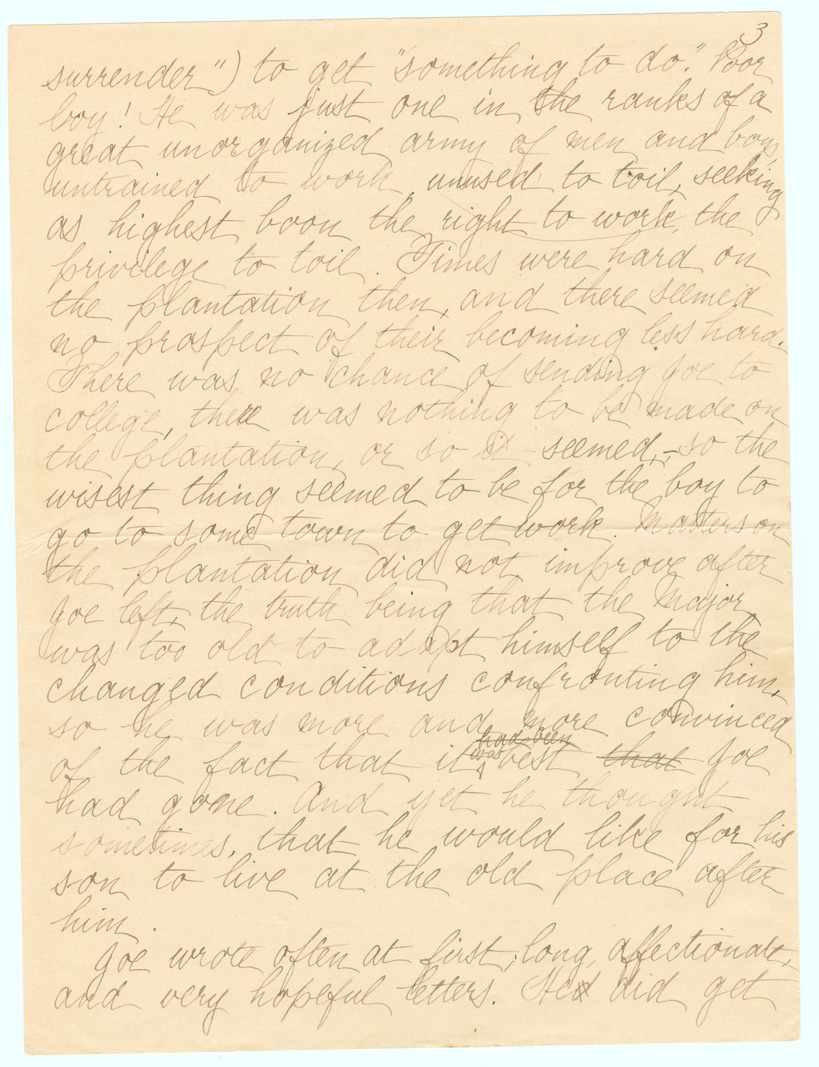 3
surrender") to get "something to do." Poor
boy! He was just one in the ranks of a
great unorganized army of men and boys,
untrained to work, unused to toil, seeking
as highest boon the right to work, the
privilege to toil. Times were hard on
the plantation then, and there seemed
no prospect of their becoming less hard.
There was no chance of sending Joe to
college, there was nothing to be made on
the plantation, or so it seemed,- so the
wisest thing seemed to be for the boy to
go to some town to get work. Matters on
the plantation did not improve after
Joe left, the truth being that the Major
was too old to adapt himself to the
changed conditions confronting him,
so he was more and more convinced
had been
of the fact that it was best that Joe
had gone. And yet he thought
sometimes, that he would like for his
son to live at the old place after
him.
Joe wrote often at first; long, affectionate,
and very hopeful letters. He did get